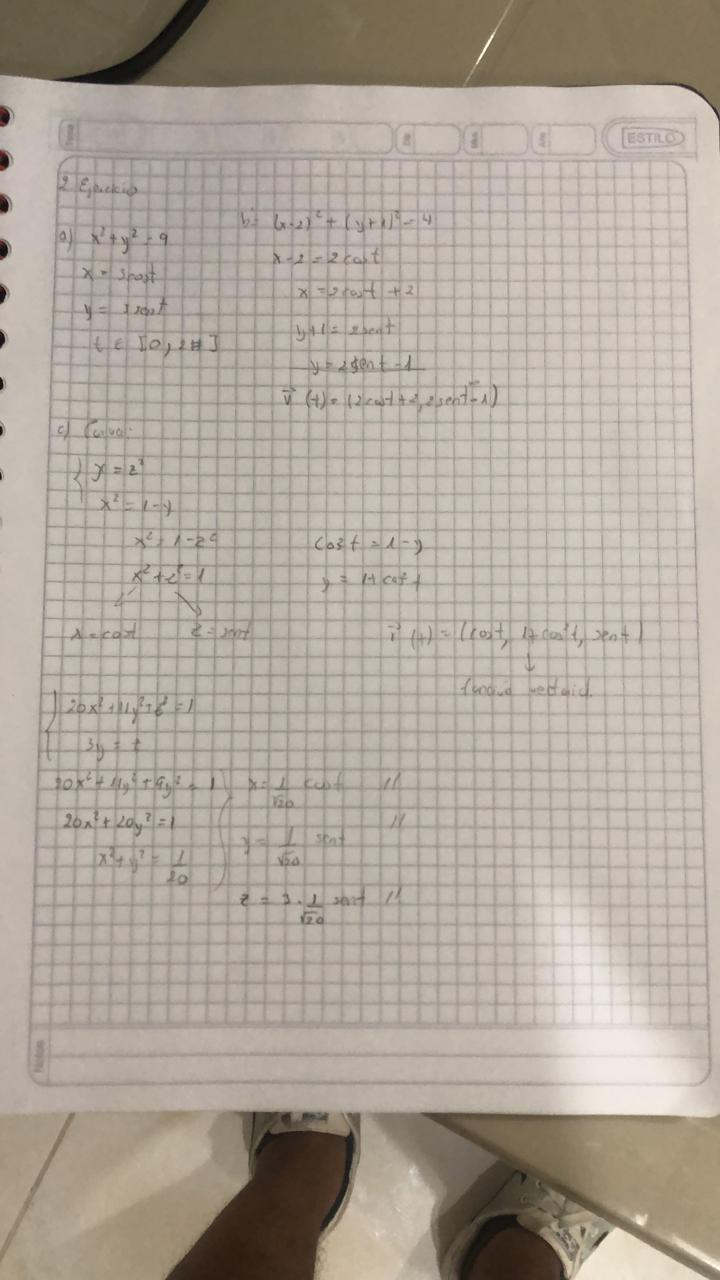 ESTILO
2 Ejercicio
a) x² + y² = 9
x = 3cost
y = 3sent
t ∈ [0, 2π]
b) (x-2)² + (y+1)² = 4
x-2 = 2cost
x = 2cost + 2
y+1 = 2sent
y = 2sent - 1
r⃗ (t) = (2cost+2, 2sent-1)
c) Curva:
y = z²
x² = 1-y
x² = 1-z²
x² + z² = 1
x = cost z = sent
cos²t = 1-y
y = 1+cos²t
r⃗ (t) = (cost, 1+cos²t, sent)
↓
20x² + 11y² + z² = 1
3y = z
20x² + 11y² + 9y² = 1
20x² + 20y² = 1
x² + y² = 1/20
x = 1/√20 cost //
y = 1/√20 sent //
z = 3 · 1/√20 sent //
Notas